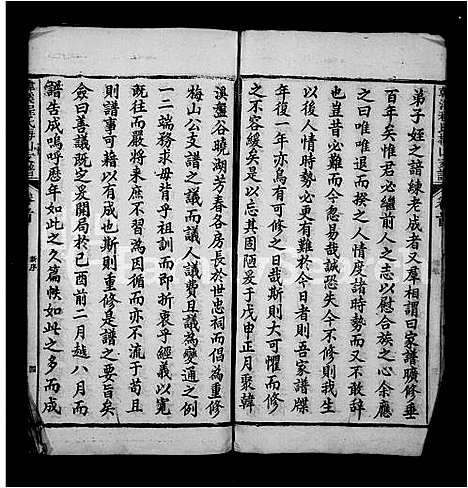 弟子姪之諳練老成者又羣相謂曰家譜曠修垂
百年矣惟君必繼前人之志以慰合族之心余應
之曰唯唯退而揆之人情度諸時勢而又不敢辭
也豈昔必難而今忽易哉誠恐失今不修則我生
以後人情時勢必更有難於今日者則吾家譜牒
之修一年亦烏有可修之日哉斯則大可懼而修
之不容緩矣是以忘其固陋爰于戊申正月聚韓
溪盤谷曉湖芳春各房長於世忠祠而倡為重修
梅山公支譜之議而議人議費且議為變通之例
一二端務求毋背乎祖訓而即折衷乎經義以寬
既往以肅將來亦不習為因循而亦不流于苟且
則譜事可藉以有成也斯則重修是譜之要旨矣
僉曰善議既定爰開局於己酉前二月越八月而
譜告成嗚呼歷年如此之久篇帙如此之多而成
新序
四